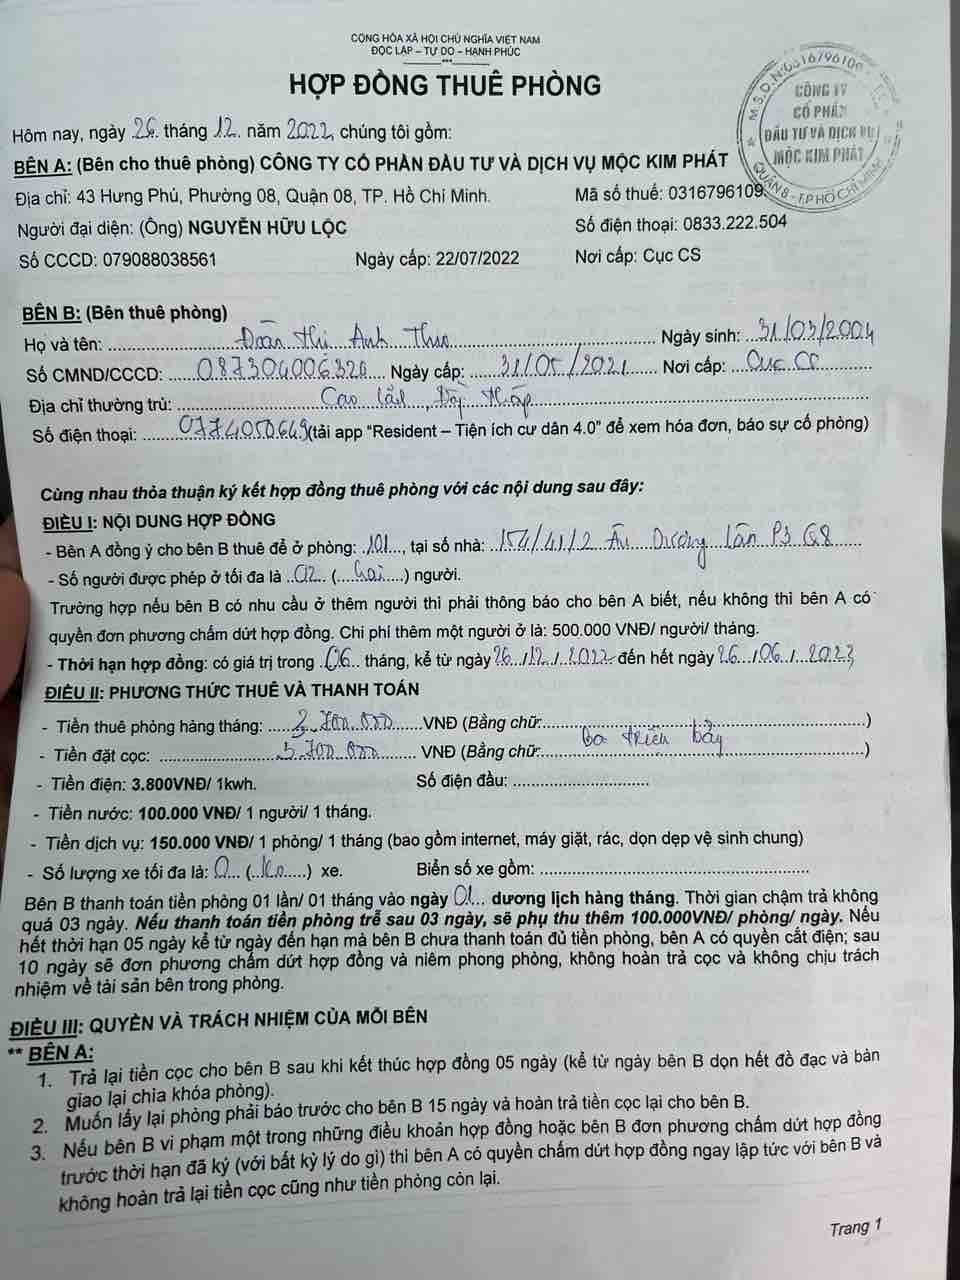 CỘNG HÒA XÃ HỘI CHỦ NGHĨA VIỆT NAM
ĐỘC LẬP – TỰ DO – HẠNH PHÚC
***
HỢP ĐỒNG THUÊ PHÒNG
M.S.D.N:0316796109
CÔNG TY
CỔ PHẦN
ĐẦU TƯ VÀ DỊCH VỤ
MỘC KIM PHÁT
QUẬN 8 - T.P HỒ CHÍ MINH
Hôm nay, ngày 26 tháng 12 năm 2022, chúng tôi gồm:
BÊN A: (Bên cho thuê phòng) CÔNG TY CỔ PHẦN ĐẦU TƯ VÀ DỊCH VỤ MỘC KIM PHÁT
Địa chỉ: 43 Hưng Phú, Phường 08, Quận 08, TP. Hồ Chí Minh. Mã số thuế: 0316796109.
Người đại diện: (Ông) NGUYỄN HỮU LỘC Số điện thoại: 0833.222.504
Số CCCD: 079088038561 Ngày cấp: 22/07/2022 Nơi cấp: Cục CS
BÊN B: (Bên thuê phòng)
Họ và tên: Đoàn Thị Anh Thư Ngày sinh: 31/03/2004
Số CMND/CCCD: 087304006320 Ngày cấp: 31/05/2021 Nơi cấp: Cục CS
Địa chỉ thường trú: Cao Lãnh, Đồng Tháp
Số điện thoại: 0774050649 (tải app "Resident – Tiện ích cư dân 4.0" để xem hóa đơn, báo sự cố phòng)
Cùng nhau thỏa thuận ký kết hợp đồng thuê phòng với các nội dung sau đây:
ĐIỀU I: NỘI DUNG HỢP ĐỒNG
- Bên A đồng ý cho bên B thuê để ở phòng: 101, tại số nhà: 154/41/2 Âu Dương Lân P3 Q8
- Số người được phép ở tối đa là 02 (hai) người.
Trường hợp nếu bên B có nhu cầu ở thêm người thì phải thông báo cho bên A biết, nếu không thì bên A có
quyền đơn phương chấm dứt hợp đồng. Chi phí thêm một người ở là: 500.000 VNĐ/ người/ tháng.
- Thời hạn hợp đồng: có giá trị trong 06 tháng, kể từ ngày 26/12/2022 đến hết ngày 26/06/2023
ĐIỀU II: PHƯƠNG THỨC THUÊ VÀ THANH TOÁN
- Tiền thuê phòng hàng tháng: 3.700.000 VNĐ (Bằng chữ: )
- Tiền đặt cọc: 3.700.000 VNĐ (Bằng chữ: ba triệu bảy)
- Tiền điện: 3.800VNĐ/ 1kwh. Số điện đầu:
- Tiền nước: 100.000 VNĐ/ 1 người/ 1 tháng.
- Tiền dịch vụ: 150.000 VNĐ/ 1 phòng/ 1 tháng (bao gồm internet, máy giặt, rác, dọn dẹp vệ sinh chung)
- Số lượng xe tối đa là: 0 (Ko) xe. Biển số xe gồm:
Bên B thanh toán tiền phòng 01 lần/ 01 tháng vào ngày 01 dương lịch hàng tháng. Thời gian chậm trả không
quá 03 ngày. Nếu thanh toán tiền phòng trễ sau 03 ngày, sẽ phụ thu thêm 100.000VNĐ/ phòng/ ngày. Nếu
hết thời hạn 05 ngày kể từ ngày đến hạn mà bên B chưa thanh toán đủ tiền phòng, bên A có quyền cắt điện; sau
10 ngày sẽ đơn phương chấm dứt hợp đồng và niêm phong phòng, không hoàn trả cọc và không chịu trách
nhiệm về tài sản bên trong phòng.
ĐIỀU III: QUYỀN VÀ TRÁCH NHIỆM CỦA MỖI BÊN
** BÊN A:
1. Trả lại tiền cọc cho bên B sau khi kết thúc hợp đồng 05 ngày (kể từ ngày bên B dọn hết đồ đạc và bàn
giao lại chìa khóa phòng).
2. Muốn lấy lại phòng phải báo trước cho bên B 15 ngày và hoàn trả tiền cọc lại cho bên B.
3. Nếu bên B vi phạm một trong những điều khoản hợp đồng hoặc bên B đơn phương chấm dứt hợp đồng
trước thời hạn đã ký (với bất kỳ lý do gì) thì bên A có quyền chấm dứt hợp đồng ngay lập tức với bên B và
không hoàn trả lại tiền cọc cũng như tiền phòng còn lại.
Trang 1